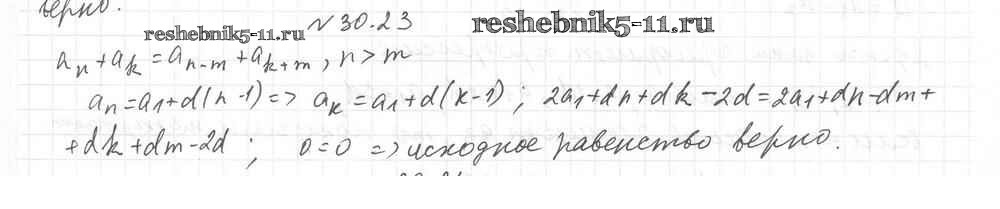 верно.
№ 30.23
reshebnik5-11.ru
reshebnik5-11.ru
aₙ + aₖ = aₙ₋ₘ + aₖ₊ₘ, n > m
aₙ = a₁ + d(n-1) => aₖ = a₁ + d(k-1); 2a₁ + dn + dk - 2d = 2a₁ + dn - dm +
+ dk + dm - 2d; 0 = 0 => исходное равенство верно.